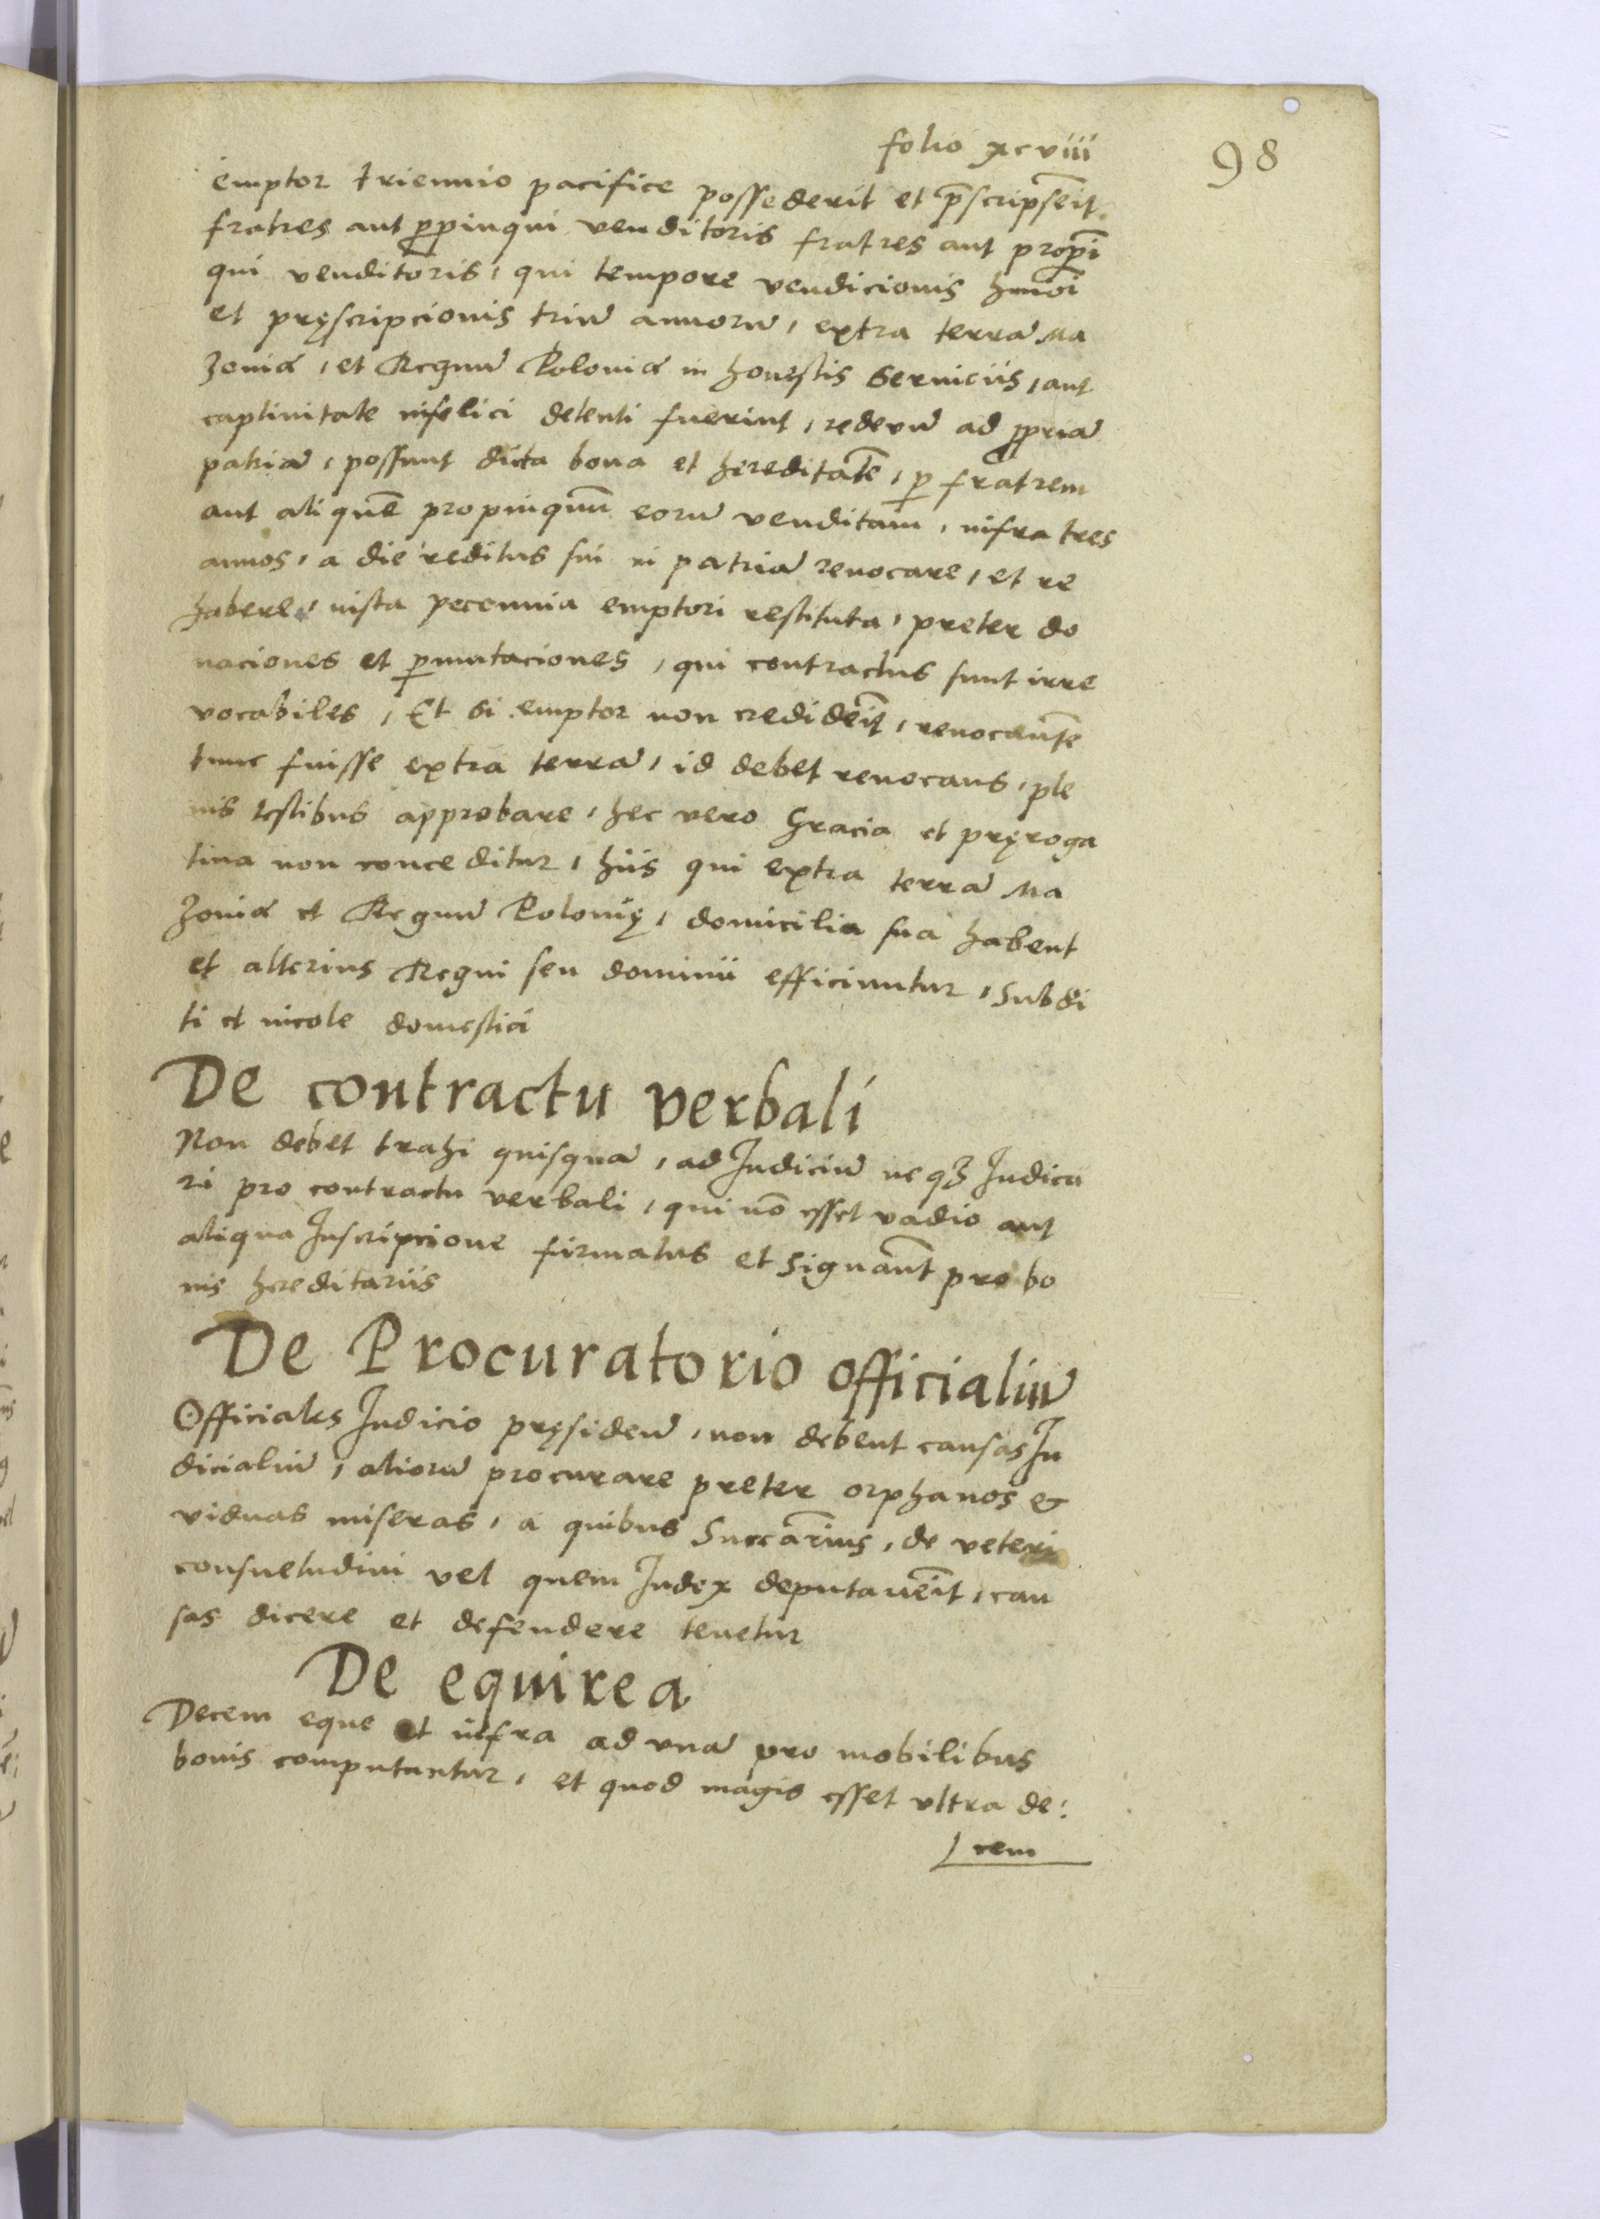 folio xcviii
98
emptor triennio pacifice possederit et p̄scripserit
fratres aut ꝓpinqui venditoris fratres aut propī
qui venditoris, qui tempore vendicionis hmōi
et pręscripcionis triū annorū, extra terrā Ma
zoviæ, et Regnū Poloniæ in honestis Serviciis, aut
captivitate infelici detenti fuerint, redeūn ad ꝓpriā
patriā, possunt dicta bona et hereditatē, ꝑ fratrem
aut aliquē propinquū eorū venditam, infra tres
annos, a die reditus sui in patriā revocare, et re
habere, iusta peccunia emptori restituta, preter do
naciones et ꝑmutaciones, qui contractus sunt irre
vocabiles, Et si emptor non crediderit, revocantē
tunc fuisse extra terrā, id debet revocans, ple
nis testibus approbare, hec vero Gracia et pręroga
tiva non conceditur, hiis qui extra terrā Ma
zoviæ et Regnū Polonię, domicilia sua habent
et alterius Regni seu dominii efficiuntur, Subdi
ti et incole domestici
De contractu verbali
Non debet trahi quisquā, ad Iudiciū neqꝫ Iudica
ri pro contractu verbali, qui nō esset vadio aut
aliqua Inscripcione firmatus et signant̄ pro bo
nis hereditariis
De Procuratorio officialiū
Officiales Iudicio pręsiden̄, non debent causas Iu
dicialiū, aliorū procurare preter orphanos &
viduas miseras, a quibus Succam̄ius, de veteri
consuetudini vel quem Iudex deputaverit, cau
sas dicere et defendere tenetur
De equirea
Decem eque et infra ad unā pro mobilibus
bonis computantur, et quod magis esset ultra de:
cem